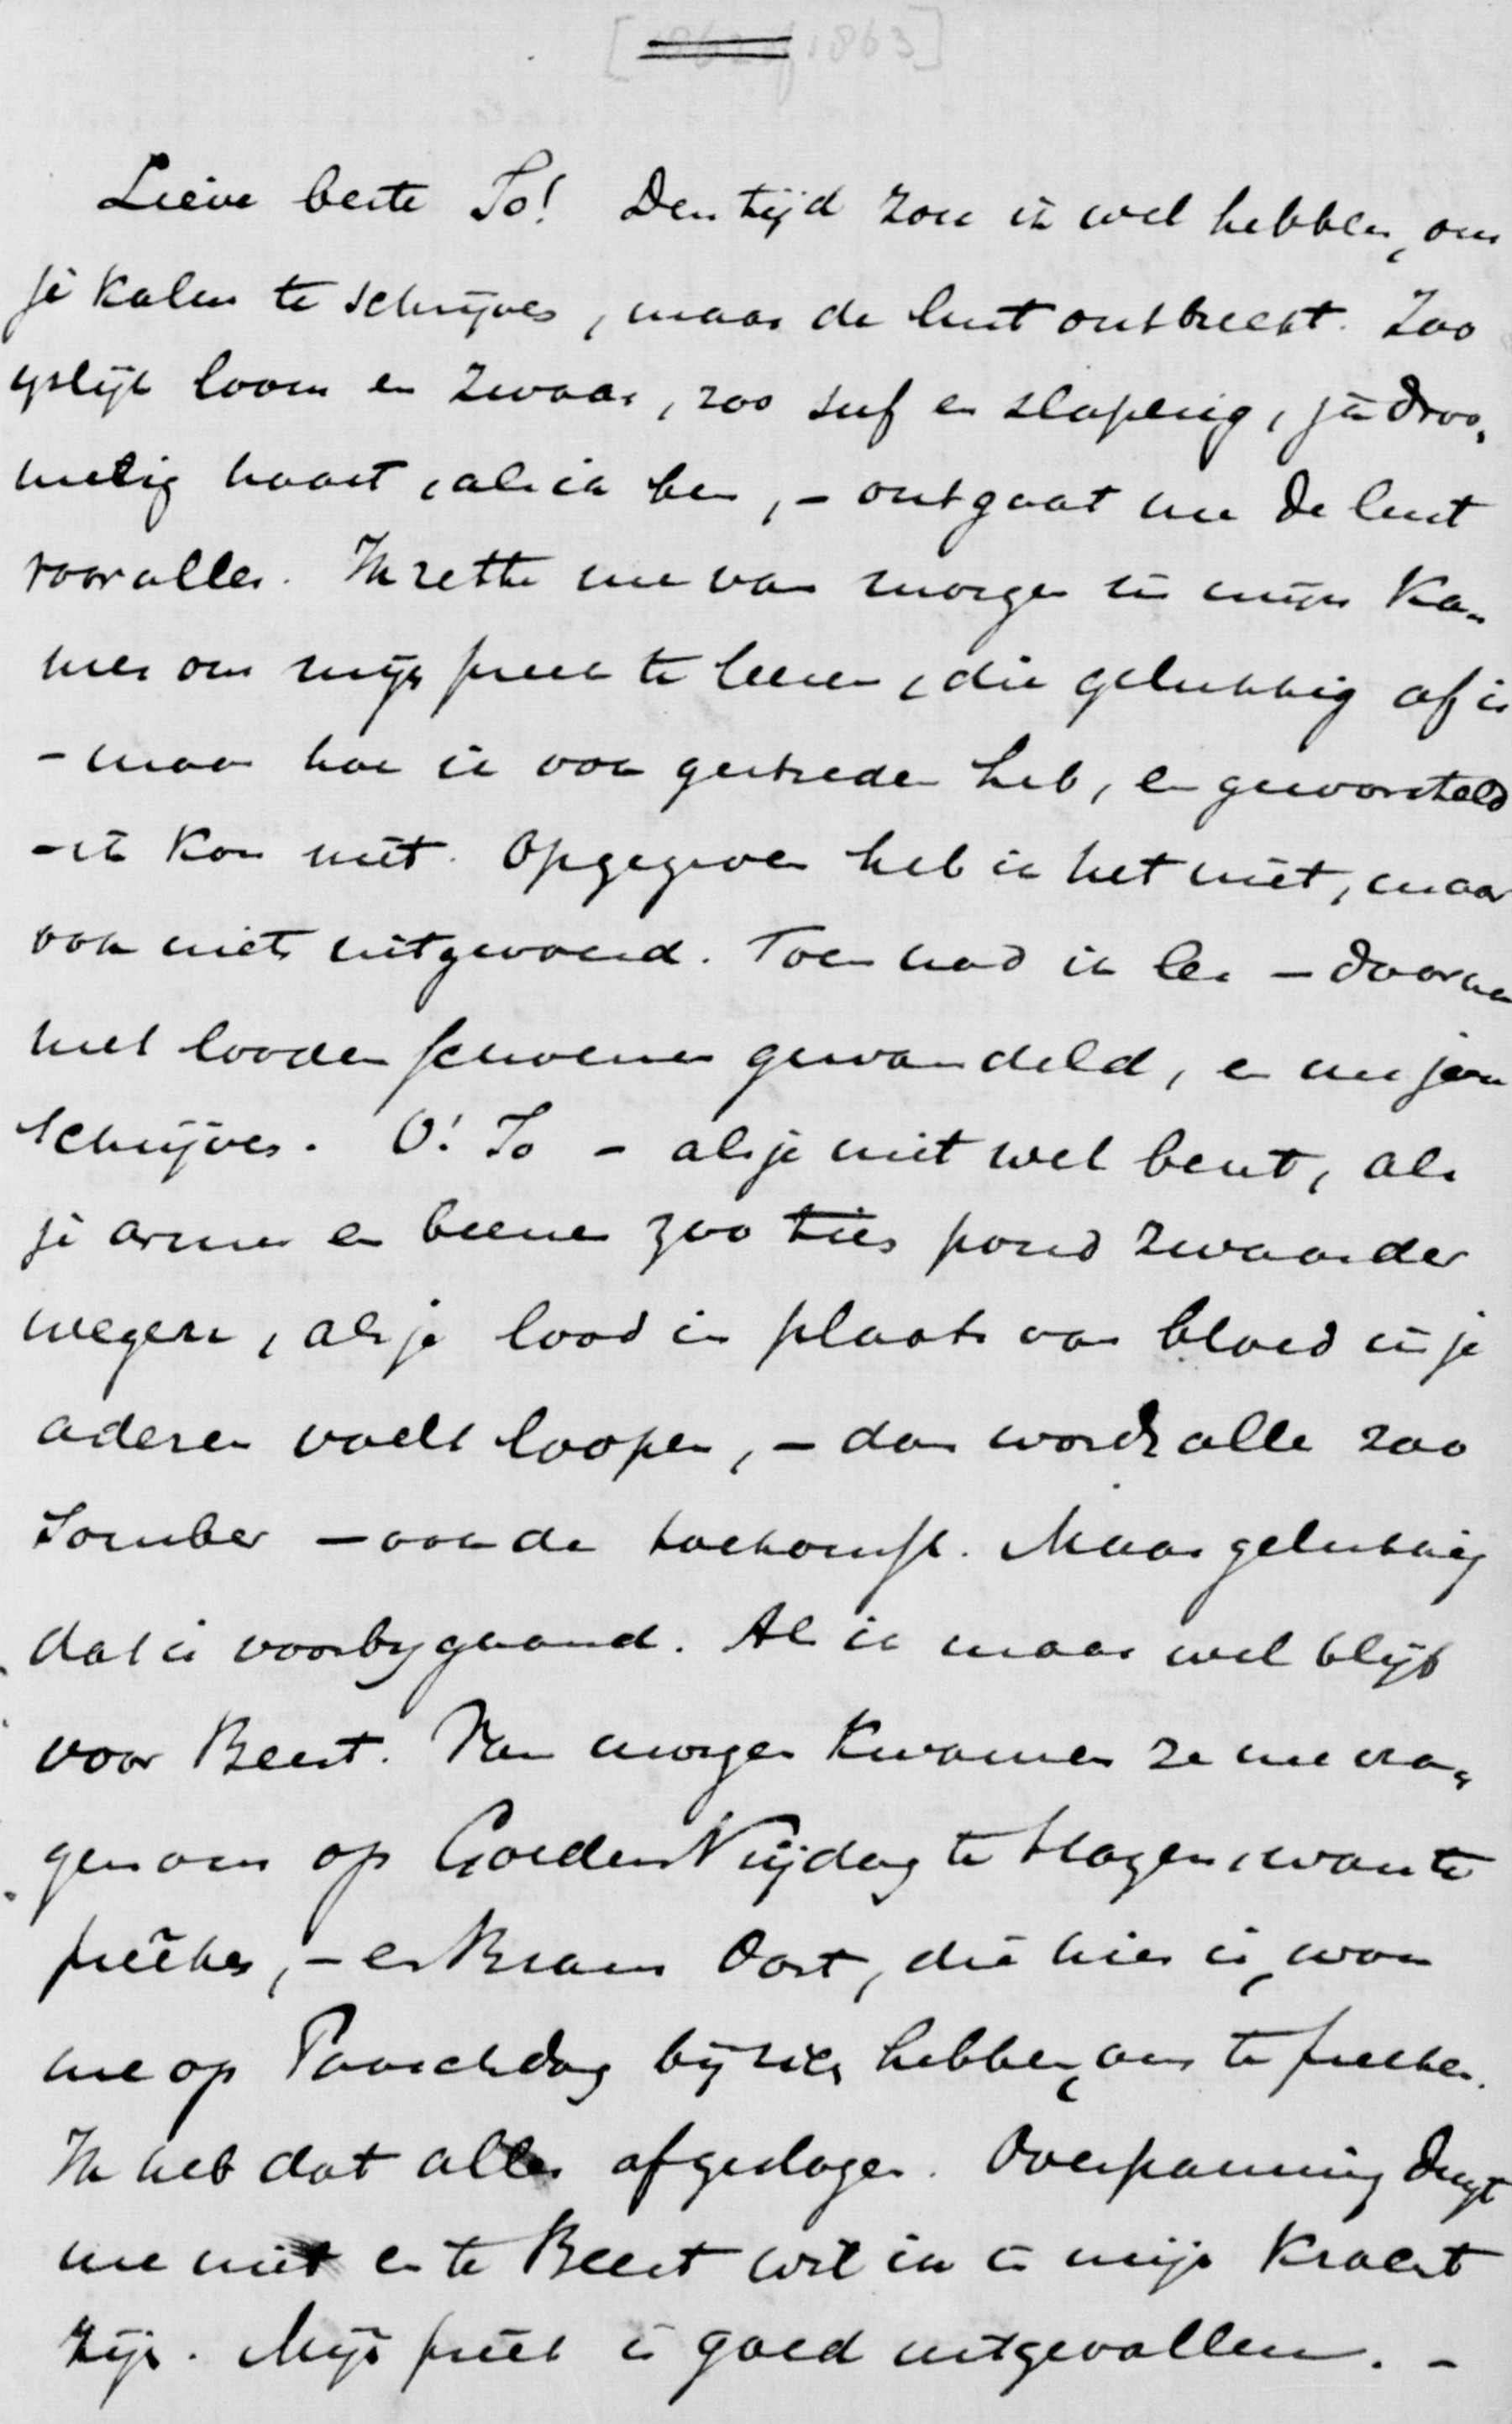 [1862 of 1863]
Lieve beste Jo! Den tijd zou ik wel hebben, om
je kalm te schrijven, maar de lust ontbreekt. Zoo
yslijk loom en zwaar, zoo suf en slaperig, ja droo-
melig haast, als ik ben, – ontgaat me de lust
voor alles. Ik zette me van morgen in mijn ka-
mer om mijn preek te leeren, die gelukkig af is
– maar hoe ik ook gestreden heb, en geworsteld
– ik kon niet. Opgegeven heb ik het niet, maar
ook niets uitgevoerd. Toen had ik les – daarna
met looden schoenen gewandeld, en nu jou
schrijven. O! Jo – als je niet wel bent, als
je armen en beenen zoo tien pond zwaarder
wegen, als je lood in plaats van bloed in je
aderen voelt loopen, – dan wordt alle zoo
somber – ook de toekomst. Maar gelukkig
dat is voorbygaand. Als ik maar wel blijf
voor Beest. Van morgen kwamen ze me vra-
gen om op Goeden Vrijdag te Hazerswoude
preêken, – en Bram Oort, die hier is, wou
me op Paaschdag bij zich hebben, om te preeken.
Ik heb dat alles afgeslagen. Overspanning deugt
me niet en te Beest wil ik in mijn kracht
zijn. Mijn preêk is goed uitgevallen. –